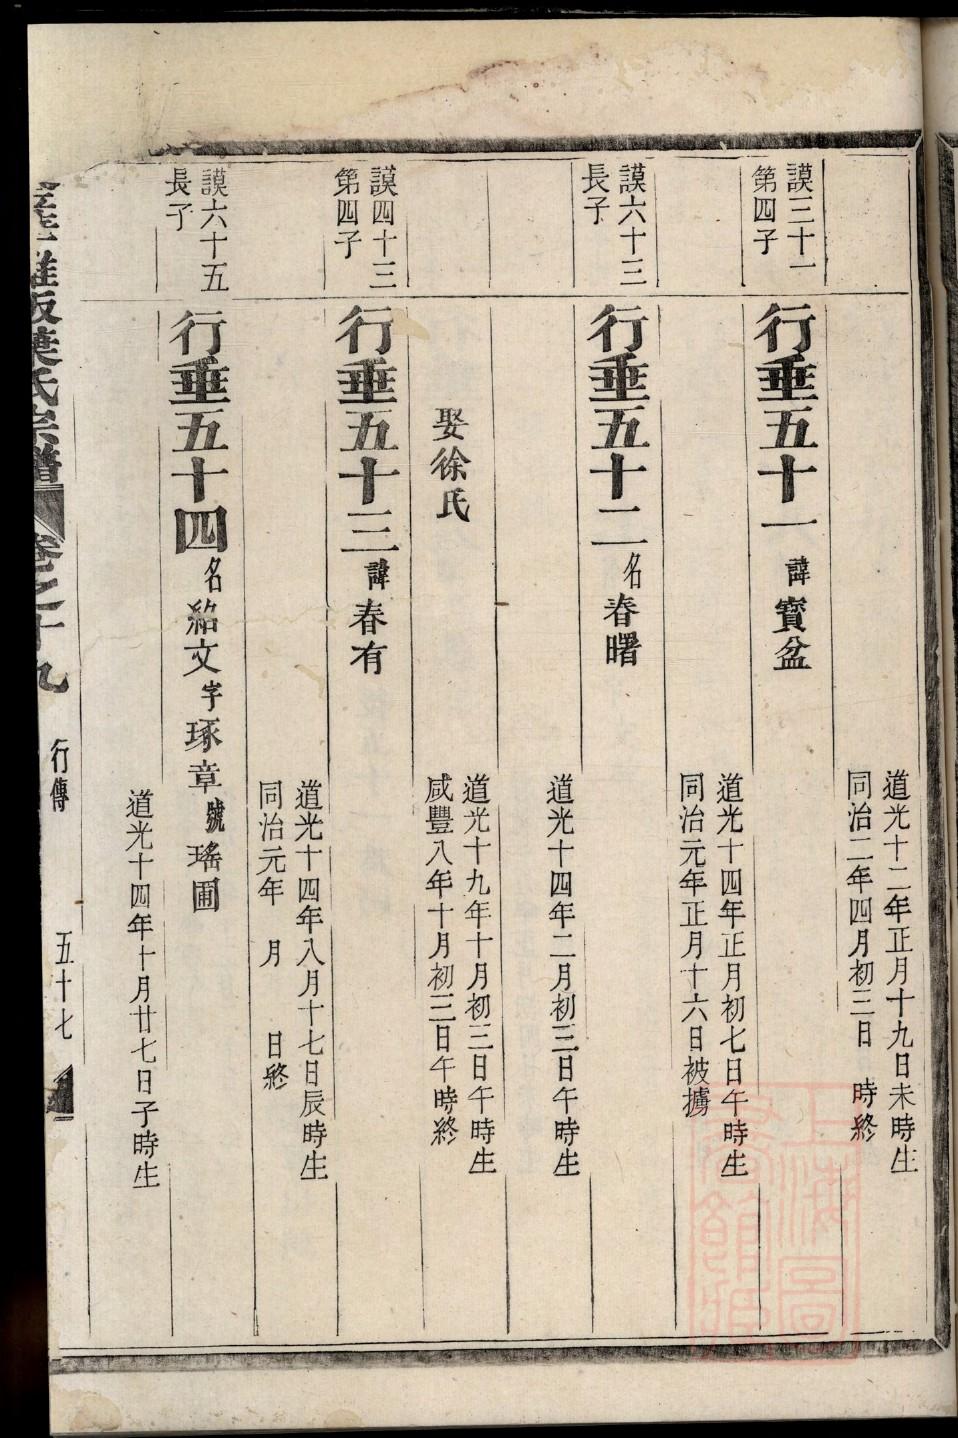 道光十二年正月十九日未時生
同治二年四月初三日 時終
謨三十一
第四子
行垂五十一 諱寳盆
道光十四年正月初七日午時生
同治元年正月十六日被擄
謨六十三
長子
行垂五十二 名春曙
道光十四年二月初三日午時生
娶徐氏
道光十九年十月初三日午時生
咸豐八年十月初三日午時終
謨四十三
第四子
行垂五十三 諱春有
道光十四年八月十七日辰時生
同治元年 月 日終
謨六十五
長子
行垂五十四 名紹文 字琢章 號瑤圃
道光十四年十月廿七日子時生
氏宗譜 卷之十九 行傳 五十七
上海圖書館藏